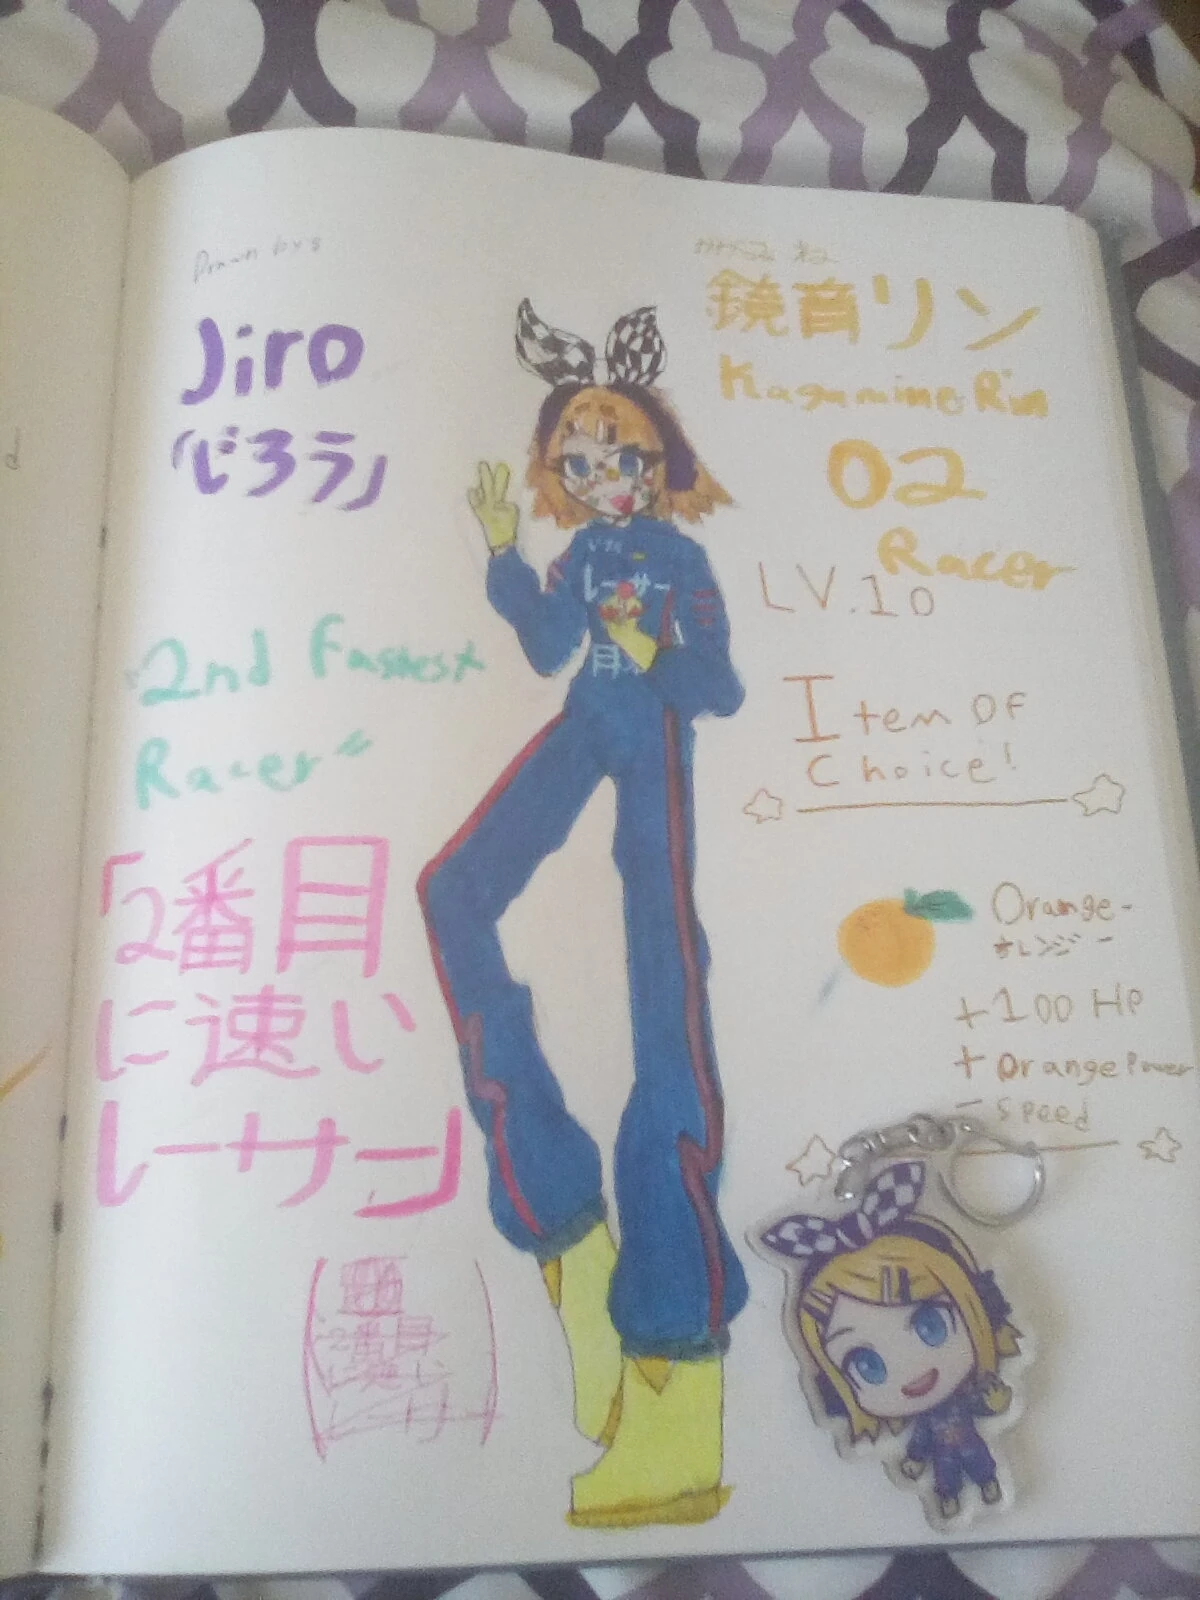 Drawn by:
Jiro
「じろう」
"2nd Fastest
Racer"
「2番目
に速い
レーサー」
かがみね
鏡音リン
Kagamine Rin
02
Racer
LV.10
Item OF
Choice!
Orange-
オレンジ-
+100 HP
+ Orange Power
- Speed
レーサー
目